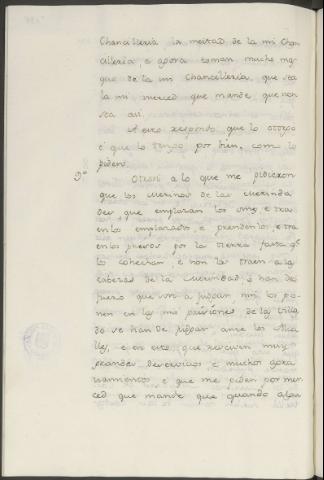 Chancilleria la meitad de la mi Chan
cilleria, e agora toman mucho mas
que de la mi Chancilleria, que sea
la mi merced que mande, que non
sea asi.
A esto respondo que lo otorgo
e que lo tengo por bien, com lo
piden.
9ª Otrosi a lo que me pidieron
que los merinos de las merinda
des que emplazan los omes, e tra
en los emplazados, e prendenlos, e tra
en los presos por la tierra fasta qe
los cohechan, e non los traen a las
cabezas de la merindad e han de
fuero que a juzgar, nin los po
nen en las mis prisiones de las villas
do se han de juzgar ante los Alca
lles, e en esto que resciven muy
grandes desservicios e muchos agra
viamientos e que me piden por mer
ced que mande que quando algun